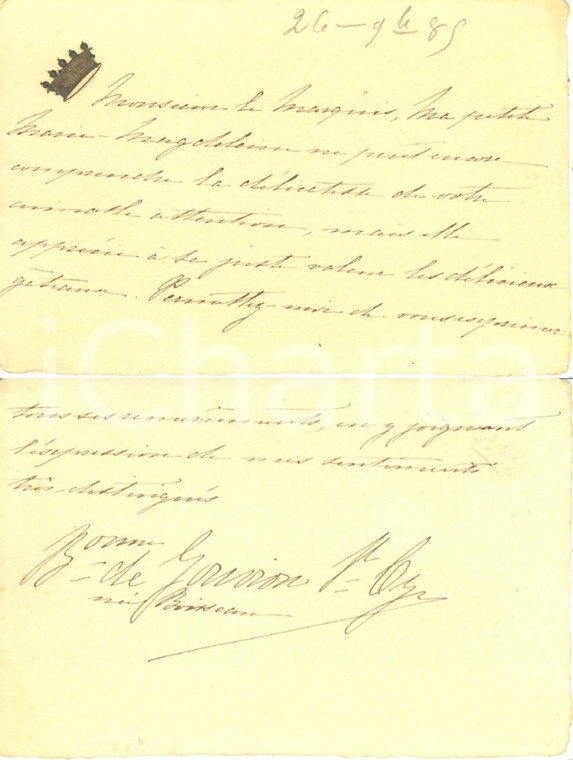 26 - 9bre 85
Monsieur le Marquis, Ma petite
Marie-Magdeleine ne peut encore
comprendre la délicatesse de votre
aimable attention, mais elle
apprécie à sa juste valeur les délicieux
gâteaux. Permettez-moi de vous exprimer
iCharta
tous ses remerciements, en y joignant
l'expression de mes sentiments
très-distingués
Bonne
de Gouvion St Cyr
née Boiseau